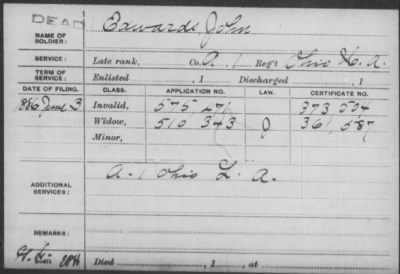 DEAD
NAME OF SOLDIER: Edwards John
SERVICE: Late rank, Co. A. 1 Reg't Ohio H. A.
TERM OF SERVICE: Enlisted , 1 Discharged , 1
DATE OF FILING. CLASS. APPLICATION NO. LAW. CERTIFICATE NO.
1886 June 3 Invalid, 575 471 373 504
Widow, 510 343 361 587
Minor,
ADDITIONAL SERVICES: A. 1 Ohio L. A.
REMARKS:
Died , 1 , at